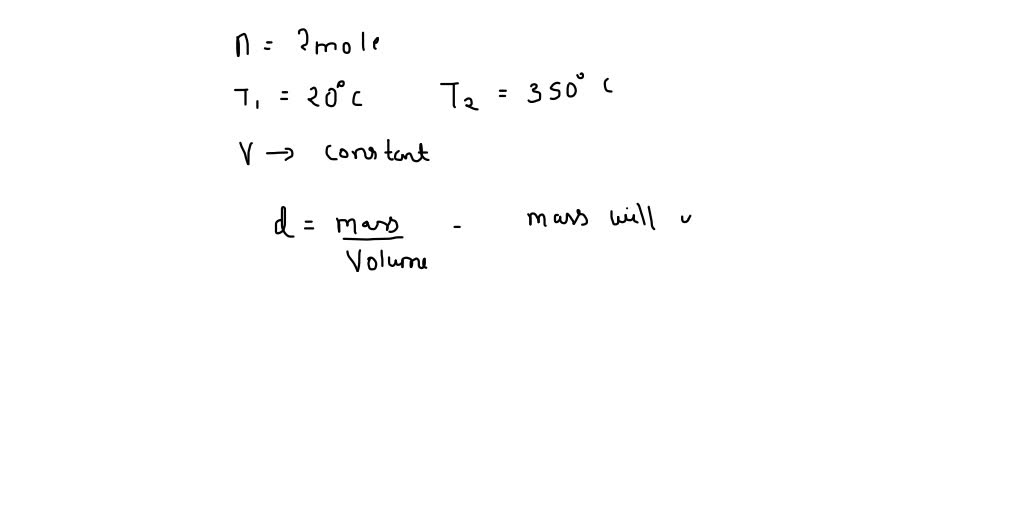 n = 2mole
T1 = 20°C T2 = 350°C
V → constant
d = mass / Volume - mass will